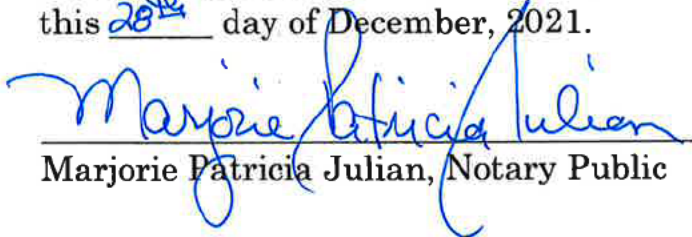 this 28th day of December, 2021.
Marjorie Patricia Julian
Marjorie Patricia Julian, Notary Public